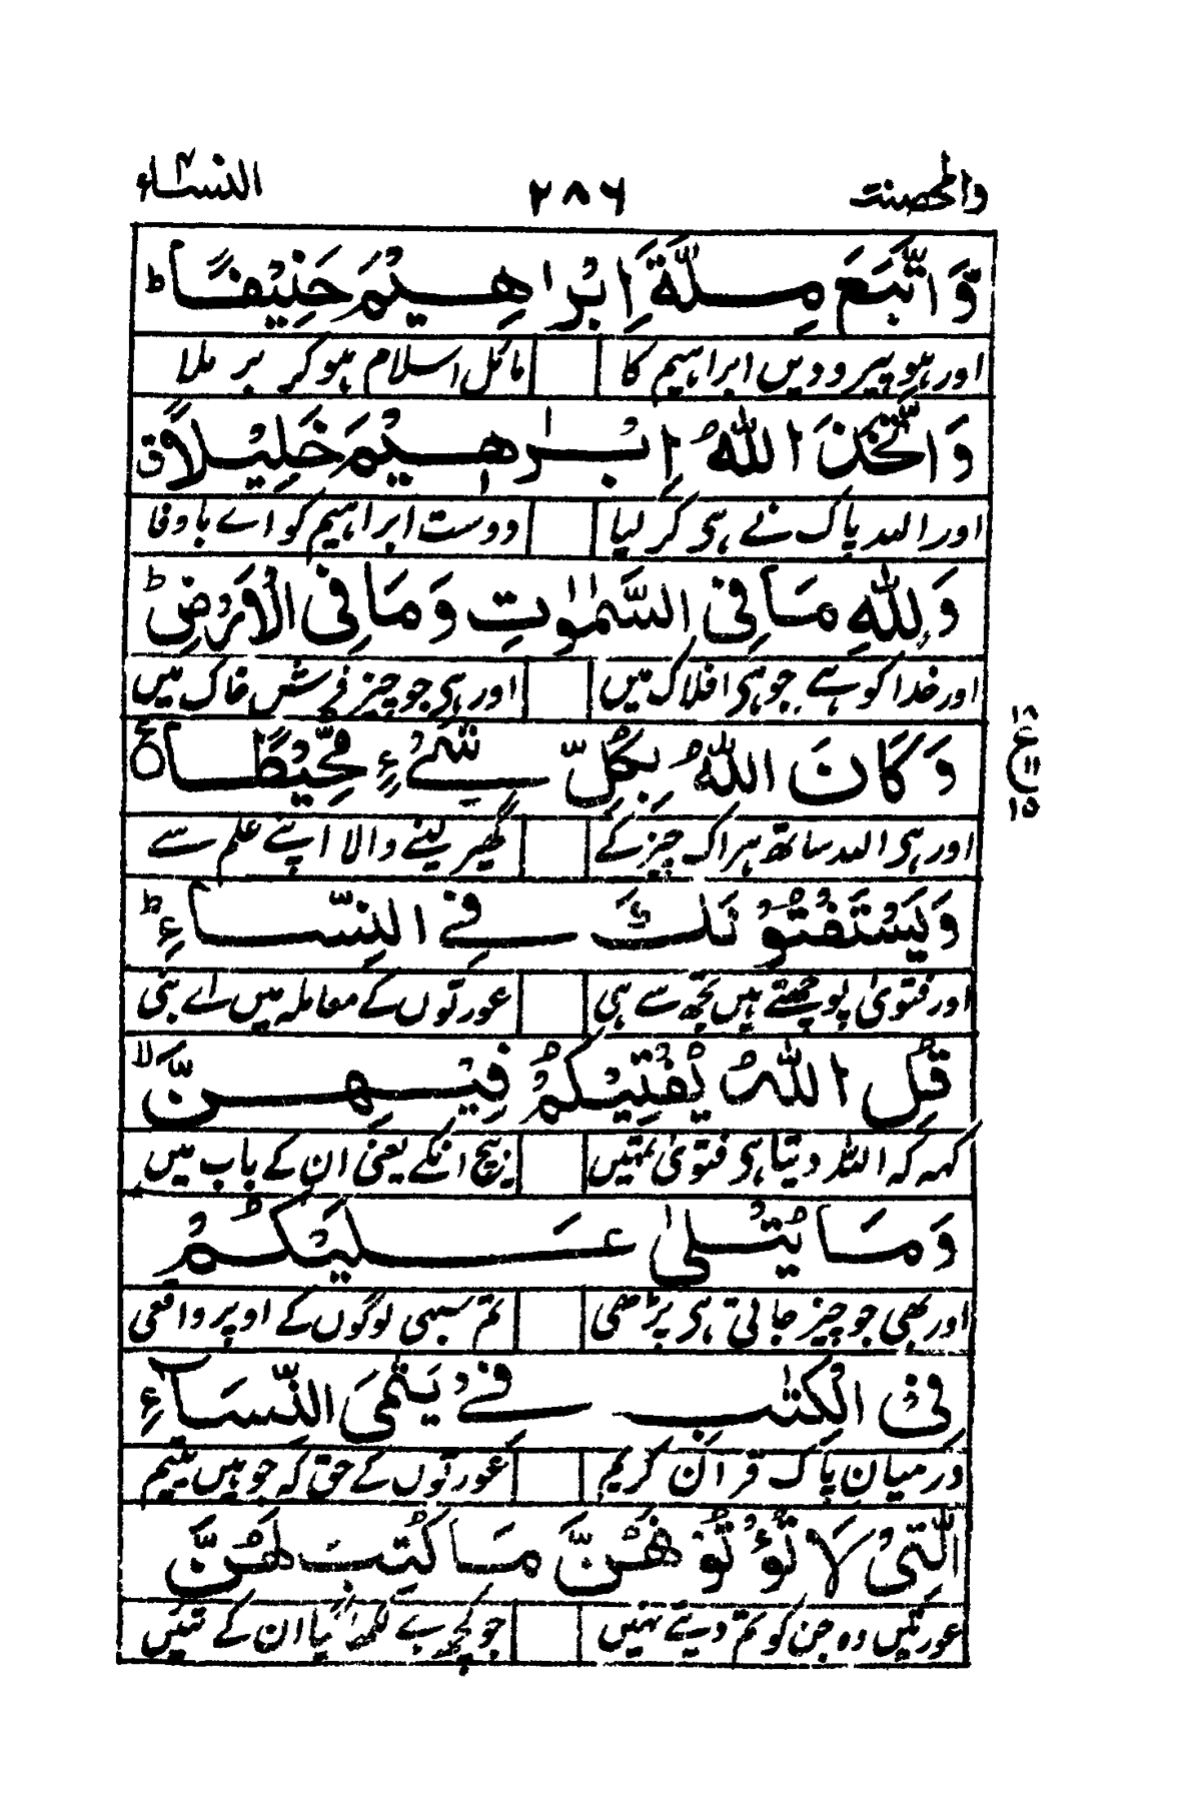 والمحصنت ٢٨٦ النساء
وَّاتَّبَعَ مِلَّةَ اِبْرٰهِيْمَ حَنِيْفًا ؕ
اور ہو پیرو دیں ابراہیم کا مائل اسلام ہو کر بر ملا
وَاتَّخَذَ اللّٰهُ اِبْرٰهِيْمَ خَلِيْلًا ق
اور اللہ پاک نے ہی کر لیا دوست ابراہیم کو اے باوفا
وَلِلّٰهِ مَا فِى السَّمٰوٰتِ وَمَا فِى الْاَرْضِ ؕ
اور خدا کو ہے جو ہی افلاک میں اور ہی جو چیز فرش خاک میں
وَكَانَ اللّٰهُ بِكُلِّ شَىْءٍ مُّحِيْطًا ع
١٨
ع
١١
١٥
اور ہی اللہ ساتھ ہر اک چیز کے گھیر لینے والا اپنے علم سے
وَيَسْتَفْتُوْنَكَ فِى النِّسَآءِ ؕ
اور فتویٰ پوچھتے ہیں تجھ سے ہی عورتوں کے معاملہ میں اے نبی
قُلِ اللّٰهُ يُفْتِيْكُمْ فِيْهِنَّ ۙ
کہہ کہ اللہ دیتا ہی فتویٰ تمہیں بیچ انکے یعنی ان کے باب میں
وَمَا يُتْلٰى عَلَيْكُمْ
اور بھی جو چیز جاتی ہی پڑھی تم سبھی لوگوں کے اوپر واقعی
فِى الْكِتٰبِ فِىْ يَتٰمَى النِّسَآءِ
درمیان پاک قرآن کریم عورتوں کے حق کہ جو ہیں یتیم
الّٰتِىْ لَا تُؤْتُوْهُنَّ مَا كُتِبَ لَهُنَّ
عورتیں وہ جن کو تم دیتے نہیں جو کچھ ہے لکھا گیا ان کے تئیں